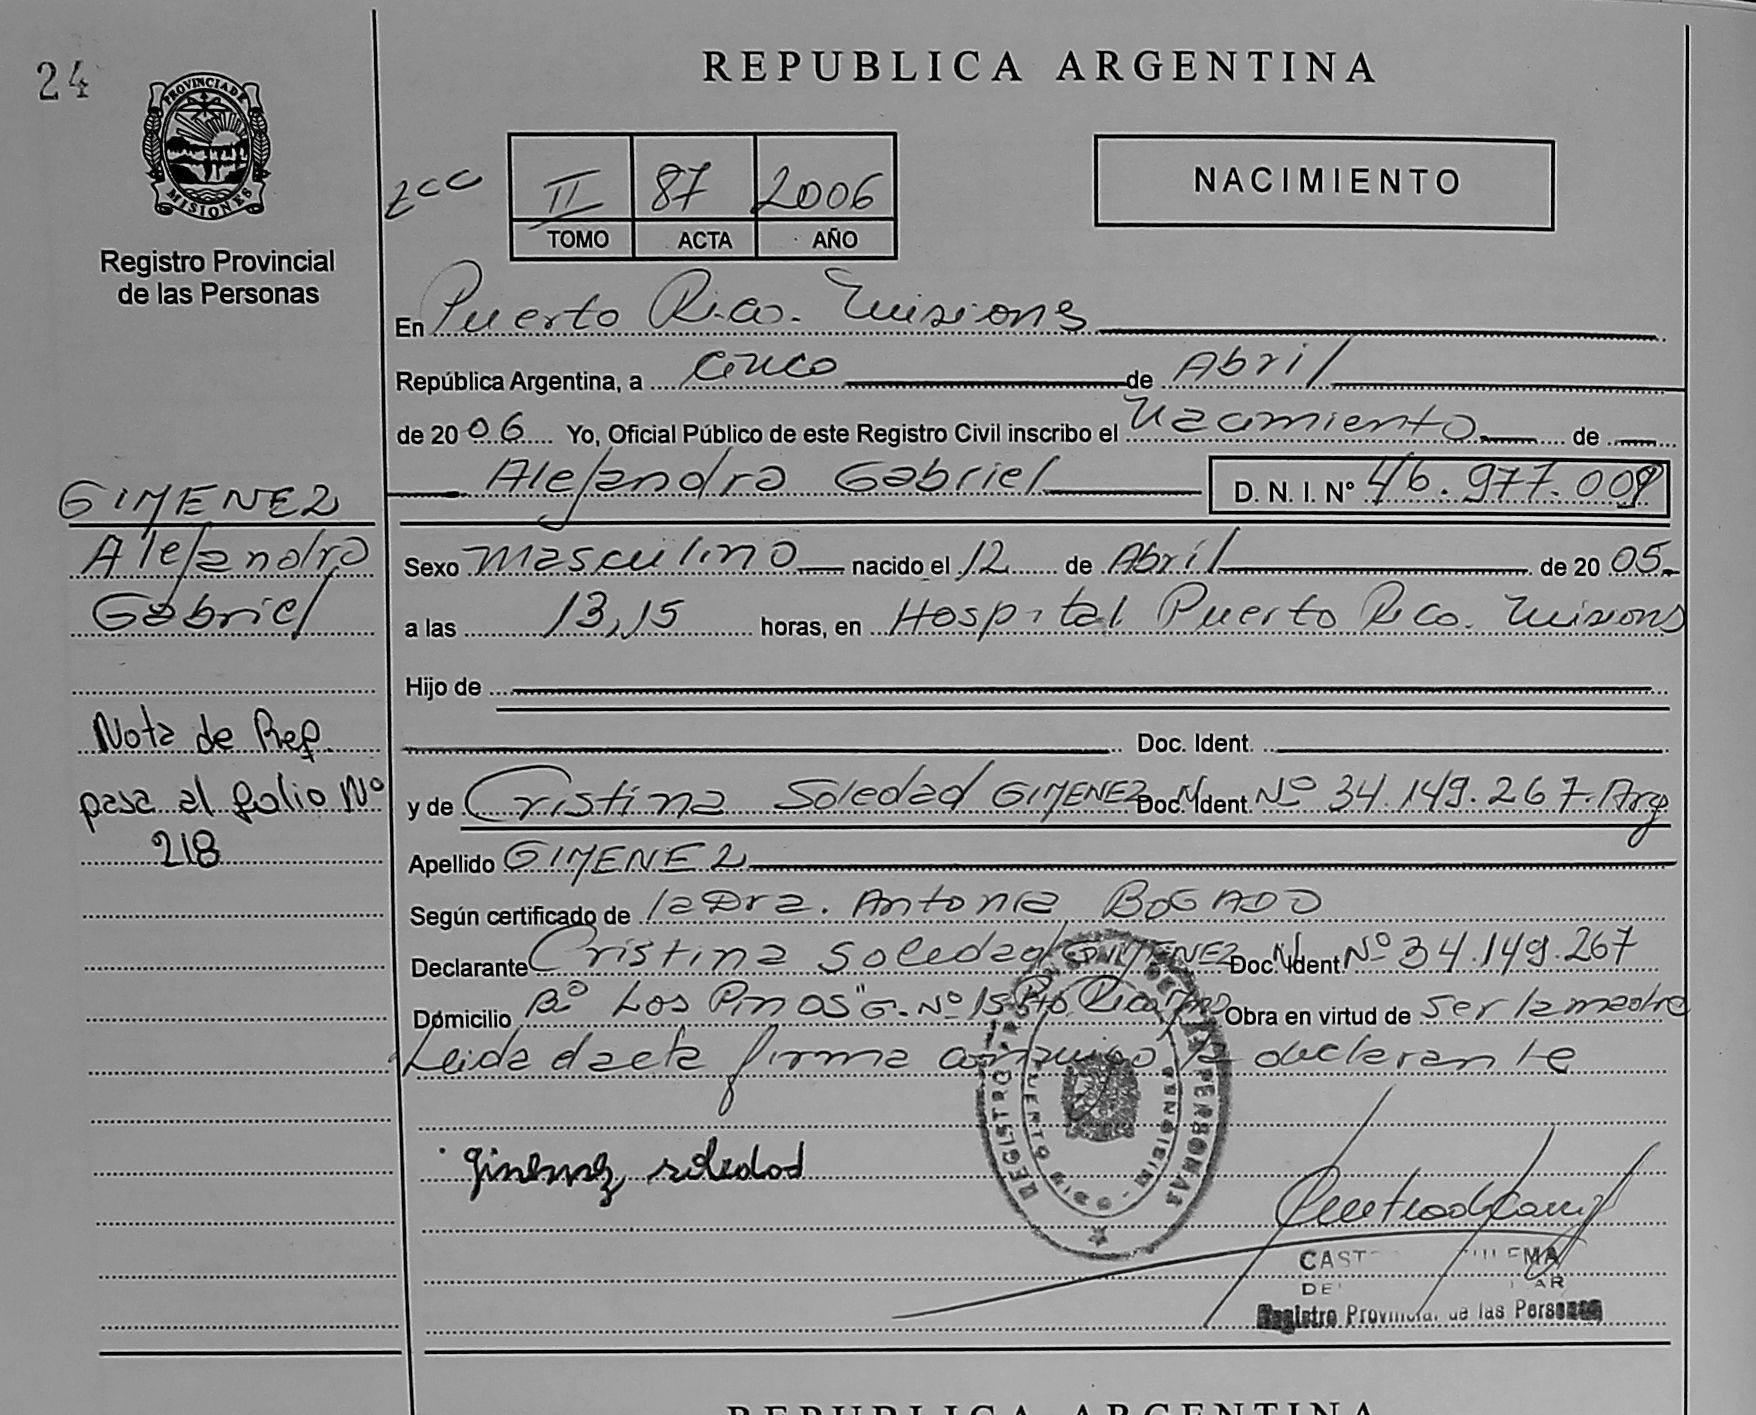 24
PROVINCIA DE
MISIONES
Registro Provincial
de las Personas
REPUBLICA ARGENTINA
II 87 2006
TOMO ACTA AÑO
NACIMIENTO
En Puerto Rico. Misiones
República Argentina, a cinco de Abril
de 2006 Yo, Oficial Público de este Registro Civil inscribo el Nacimiento de
Alejandro Gabriel D. N. I. Nº 46.977.009
GIMENEZ
Alejandro
Gabriel
Sexo Masculino nacido el 12 de Abril de 2005
a las 13,15 horas, en Hospital Puerto Rico. Misiones
Hijo de
Doc. Ident.
Nota de Ref.
pasa al folio Nº
218
y de Cristina Soledad GIMENEZ Doc. Ident. Nº 34.149.267. Arg
Apellido GIMENEZ
Según certificado de la Dra. Antonia BOGADO
Declarante Cristina Soledad GIMENEZ Doc. Ident. Nº 34.149.267
Domicilio Bº Los Pinos "G. Nº 15 Pto Rico Mnes Obra en virtud de ser la madre
Leida el acta firma conmigo la declarante
gimenez soledad
REGISTRO PERSONAS
PUERTO RICO - MISIONES
Registro Provincial de las Personas
REPUBLICA ARGENTINA